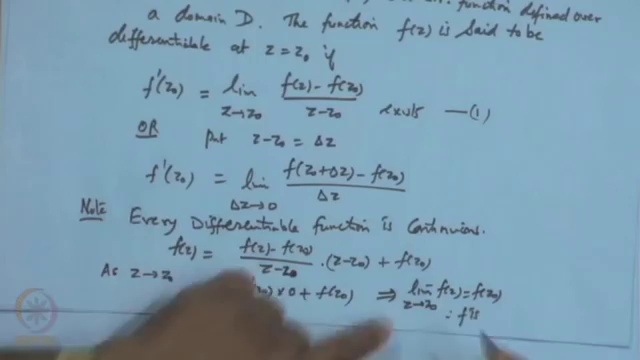 function defined over
a domain D. The function f(z) is said to be
differentiable at z = z₀ if
f'(z₀) = lim z→z₀ (f(z) - f(z₀))/(z - z₀) exists —(1)
OR put z - z₀ = Δz
f'(z₀) = lim Δz→0 (f(z₀+Δz) - f(z₀))/Δz
Note Every Differentiable function is Continuous.
f(z) = (f(z) - f(z₀))/(z - z₀) · (z - z₀) + f(z₀)
As z→z₀
z₀) × 0 + f(z₀) ⇒ lim z→z₀ f(z) = f(z₀)
∴ f is